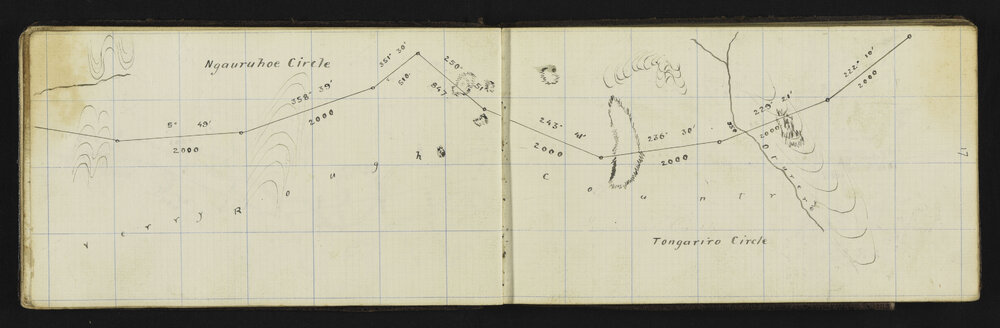 Ngauruhoe Circle
5° 49'
2000
358° 39'
2000
351° 30'
510
250° 51'
847
243° 41'
2000
236° 30'
2000
350
229° 21'
2000
222° 10'
2000
very Rough Country
Tongariro Circle
17